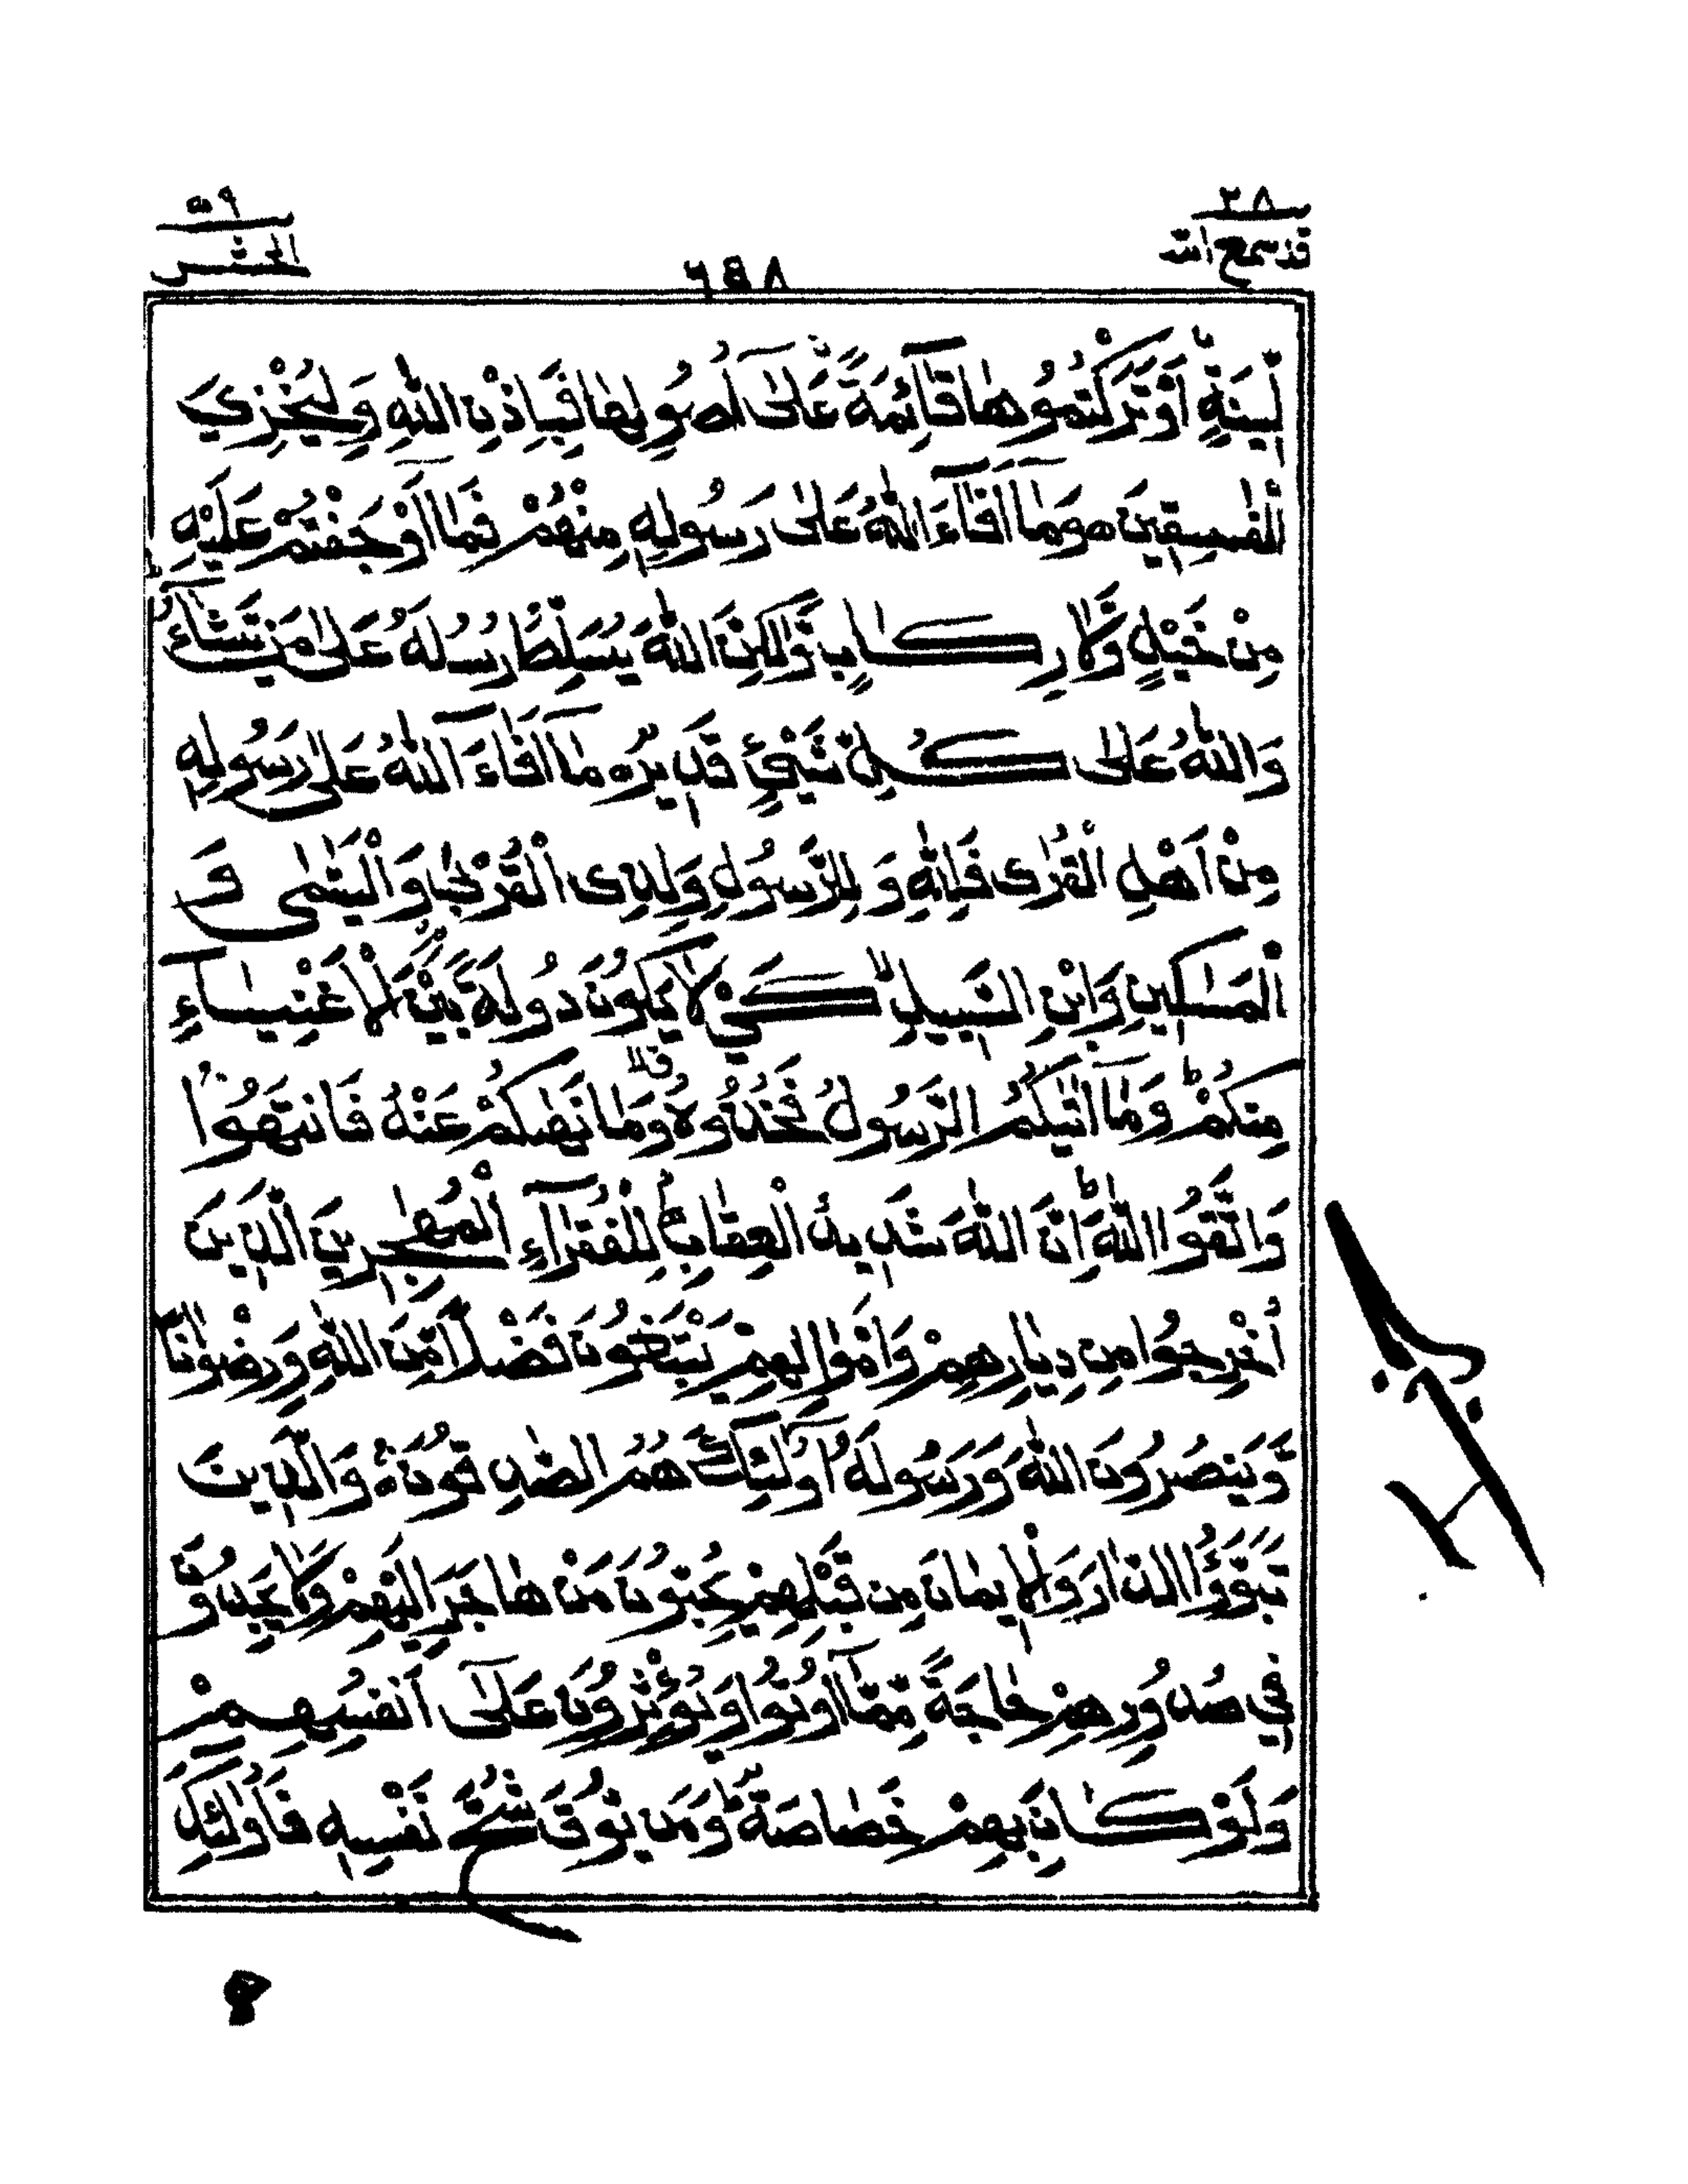 ٢٨
قد سمع الله
٥٩
الحشر
٦٥٨
لِّيْنَةٍ اَوْ تَرَكْتُمُوْهَا قَآئِمَةً عَلٰٓى اُصُوْلِهَا فَبِاِذْنِ اللّٰهِ وَلِيُخْزِيَ
الْفٰسِقِيْنَ ه وَمَآ اَفَآءَ اللّٰهُ عَلٰى رَسُوْلِهٖ مِنْهُمْ فَمَآ اَوْجَفْتُمْ عَلَيْهِ
مِنْ خَيْلٍ وَّلَا رِكَابٍ وَّلٰكِنَّ اللّٰهَ يُسَلِّطُ رُسُلَهٗ عَلٰى مَنْ يَّشَآءُ ؕ
وَاللّٰهُ عَلٰى كُلِّ شَيْءٍ قَدِيْرٌ ه مَآ اَفَآءَ اللّٰهُ عَلٰى رَسُوْلِهٖ
مِنْ اَهْلِ الْقُرٰى فَلِلّٰهِ وَ لِلرَّسُوْلِ وَلِذِى الْقُرْبٰى وَالْيَتٰمٰى وَ
الْمَسٰكِيْنِ وَابْنِ السَّبِيْلِ ۙ كَيْ لَا يَكُوْنَ دُوْلَةًۢ بَيْنَ الْاَغْنِيَآءِ
مِنْكُمْ ؕ وَمَآ اٰتٰىكُمُ الرَّسُوْلُ فَخُذُوْهُ ۗ وَمَا نَهٰىكُمْ عَنْهُ فَانْتَهُوْا ۚ
وَاتَّقُوا اللّٰهَ ؕ اِنَّ اللّٰهَ شَدِيْدُ الْعِقَابِ ۘ لِلْفُقَرَآءِ الْمُهٰجِرِيْنَ الَّذِيْنَ
اُخْرِجُوْا مِنْ دِيَارِهِمْ وَاَمْوَالِهِمْ يَبْتَغُوْنَ فَضْلًا مِّنَ اللّٰهِ وَرِضْوَانًا
وَّيَنْصُرُوْنَ اللّٰهَ وَرَسُوْلَهٗ ؕ اُولٰٓئِكَ هُمُ الصّٰدِقُوْنَ ۚ وَالَّذِيْنَ
تَبَوَّؤُا الدَّارَ وَالْاِيْمَانَ مِنْ قَبْلِهِمْ يُحِبُّوْنَ مَنْ هَاجَرَ اِلَيْهِمْ وَلَا يَجِدُوْنَ
فِيْ صُدُوْرِهِمْ حَاجَةً مِّمَّآ اُوْتُوْا وَيُؤْثِرُوْنَ عَلٰٓى اَنْفُسِهِمْ
وَلَوْ كَانَ بِهِمْ خَصَاصَةٌ ؕ وَمَنْ يُّوْقَ شُحَّ نَفْسِهٖ فَاُولٰٓئِكَ